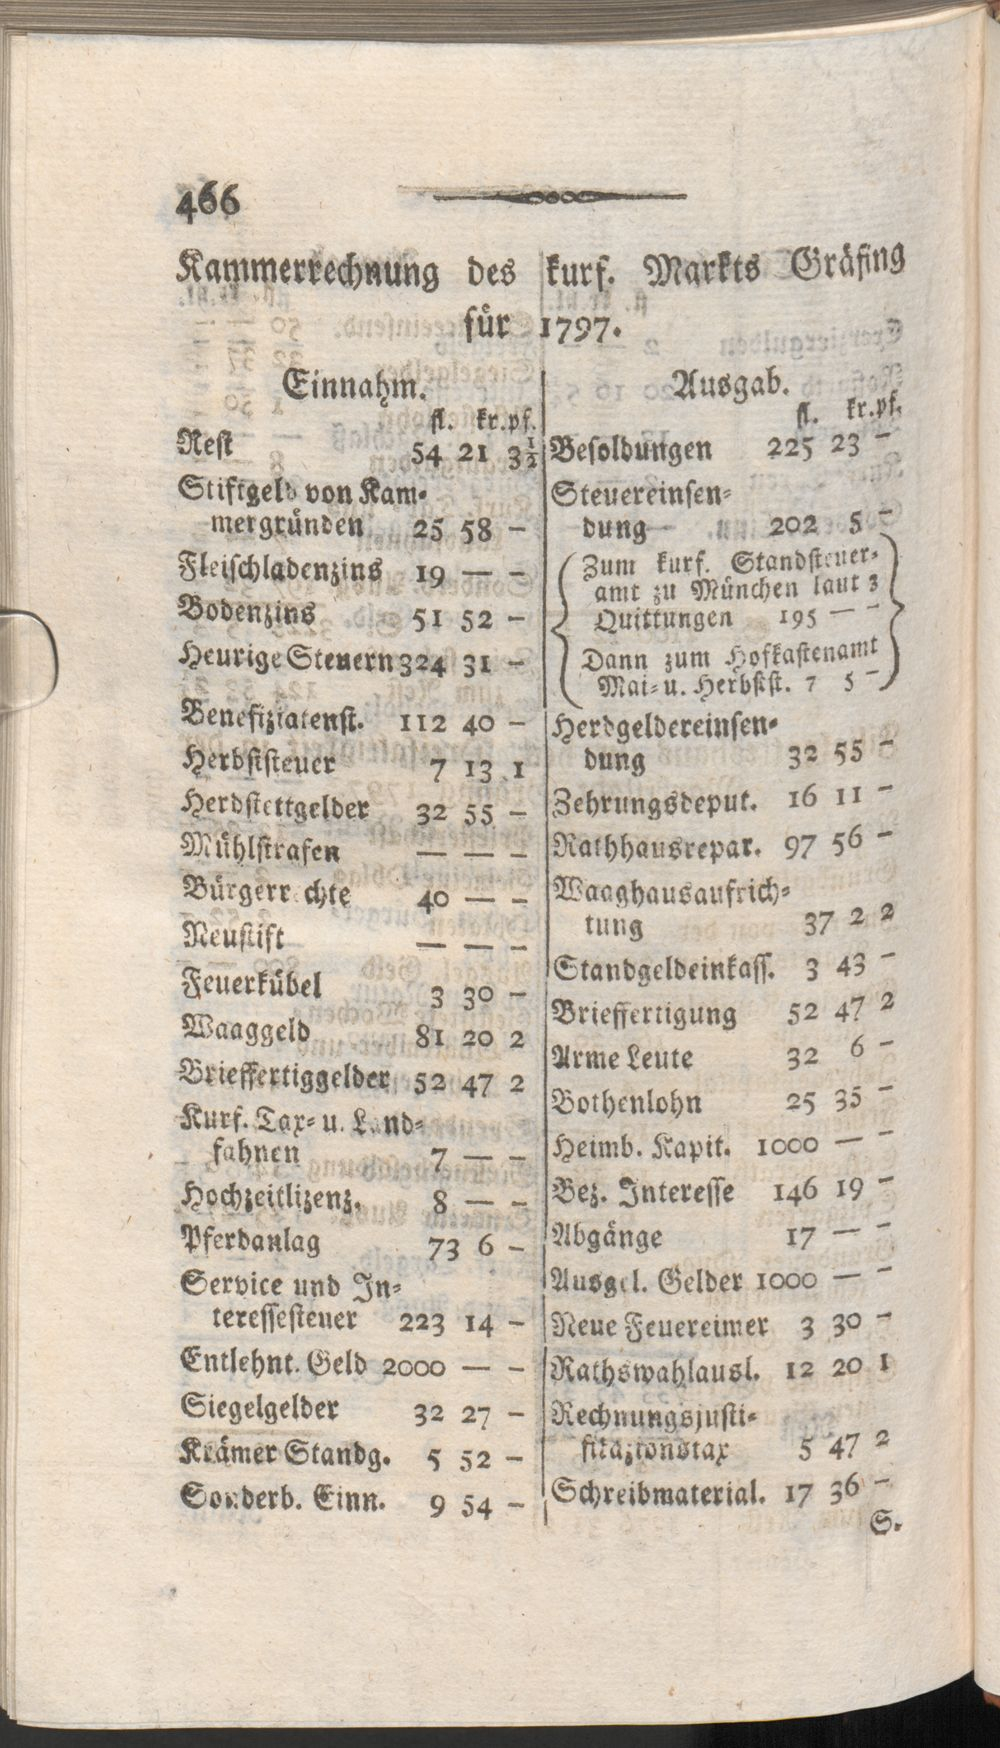 466
Kammerrechnung des kurf. Markts Gräfing
für 1797.
Einnahm.
fl. kr. pf.
Rest 54 21 3½
Stiftgeld von Kam-
mergründen 25 58 —
Fleischladenzins 19 — —
Bodenzins 51 52 —
Heurige Steuern 324 31 —
Benefiziatenst. 112 40 —
Herbststeuer 7 13 1
Herdstettgelder 32 55 —
Mühlstrafen — — —
Bürgerrechte 40 — —
Neustift — — —
Feuerkübel 3 30 —
Waaggeld 81 20 2
Brieffertiggelder 52 47 2
Kurf. Tax- u. Land-
fahnen 7 — —
Hochzeitlizenz. 8 — —
Pferdanlag 73 6 —
Service und In-
teressesteuer 223 14 —
Entlehnt. Geld 2000 — —
Siegelgelder 32 27 —
Krämer Standg. 5 52 —
Sonderb. Einn. 9 54 —
Ausgab.
fl. kr. pf.
Besoldungen 225 23 —
Steuereinsen-
dung 202 5 —
Zum kurf. Standsteuer-
amt zu München laut 3
Quittungen 195 — —
Dann zum Hofkastenamt
Mai- u. Herbstst. 7 5 —
Herdgeldereinsen-
dung 32 55 —
Zehrungsdeput. 16 11 —
Rathhausrepar. 97 56 —
Waaghausaufrich-
tung 37 2 2
Standgeldeinkass. 3 43 —
Brieffertigung 52 47 2
Arme Leute 32 6 —
Bothenlohn 25 35 —
Heimb. Kapit. 1000 — —
Bez. Interesse 146 19 —
Abgänge 17 — —
Ausgel. Gelder 1000 — —
Neue Feuereimer 3 30 —
Rathswahlausl. 12 20 1
Rechnungsjusti-
fikazionstax 5 47 2
Schreibmaterial. 17 36 —
S.